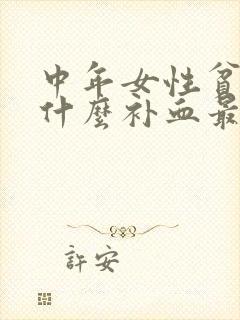 中年女性貧
什麼补血最
許安